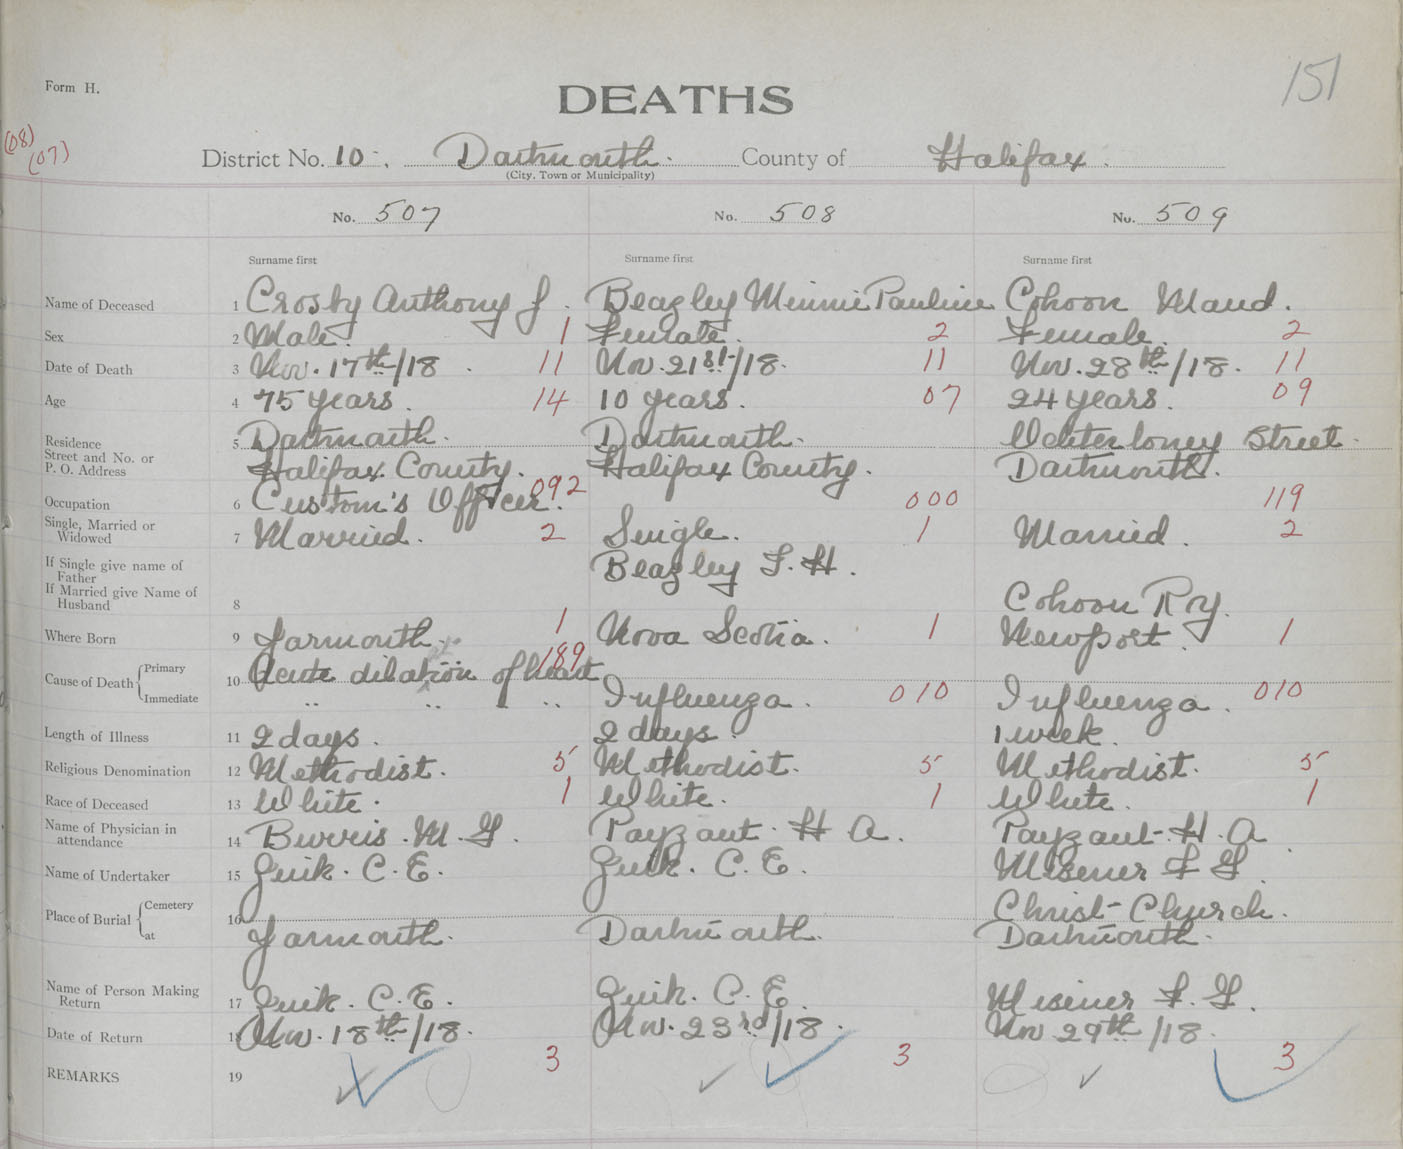 151
Form H.
DEATHS
(08)
(07)
District No. 10. Dartmouth. County of Halifax.
(City, Town or Municipality)
No. 507 No. 508 No. 509
Surname first Surname first Surname first
Name of Deceased 1 Crosby Anthony J. Beazley Minnie Pauline Cohoon Maud.
Sex 2 Male. 1 Female. 2 Female. 2
Date of Death 3 Nov. 17th/18. 11 Nov. 21st/18. 11 Nov. 28th/18. 11
Age 4 75 years. 14 10 years. 07 24 years. 09
Residence 5 Dartmouth. Dartmouth. Street.
Street and No. or
P. O. Address Halifax County. Halifax County. Dartmouth.
Occupation 6 Custom's Officer. 092 000 119
Single, Married or
Widowed 7 Married. 2 Single. 1 Married. 2
If Single give name of
Father Beazley F. H.
If Married give Name of
Husband 8 Cohoon Roy.
Where Born 9 Yarmouth. 1 Nova Scotia. 1 Newport. 1
Cause of Death { Primary 10 Acute dilation of heart 189
Immediate " " " " Influenza. 010 Influenza. 010
Length of Illness 11 2 days. 2 days. 1 week.
Religious Denomination 12 Methodist. 5 Methodist. 5 Methodist. 5
Race of Deceased 13 White. 1 White. 1 White. 1
Name of Physician in
attendance 14 Burris. M. G. Payzant. H A. Payzant. H. A.
Name of Undertaker 15 Zwik. C. E. Zwik. C. E. Misener F G.
Place of Burial { Cemetery 16 Christ-Church.
at Yarmouth. Dartmouth. Dartmouth.
Name of Person Making
Return 17 Zwik. C. E. Zwik. C. E. Misener F. G.
Date of Return 18 Nov. 18th/18. Nov. 23rd/18. Nov 29th/18.
3 3 3
REMARKS 19